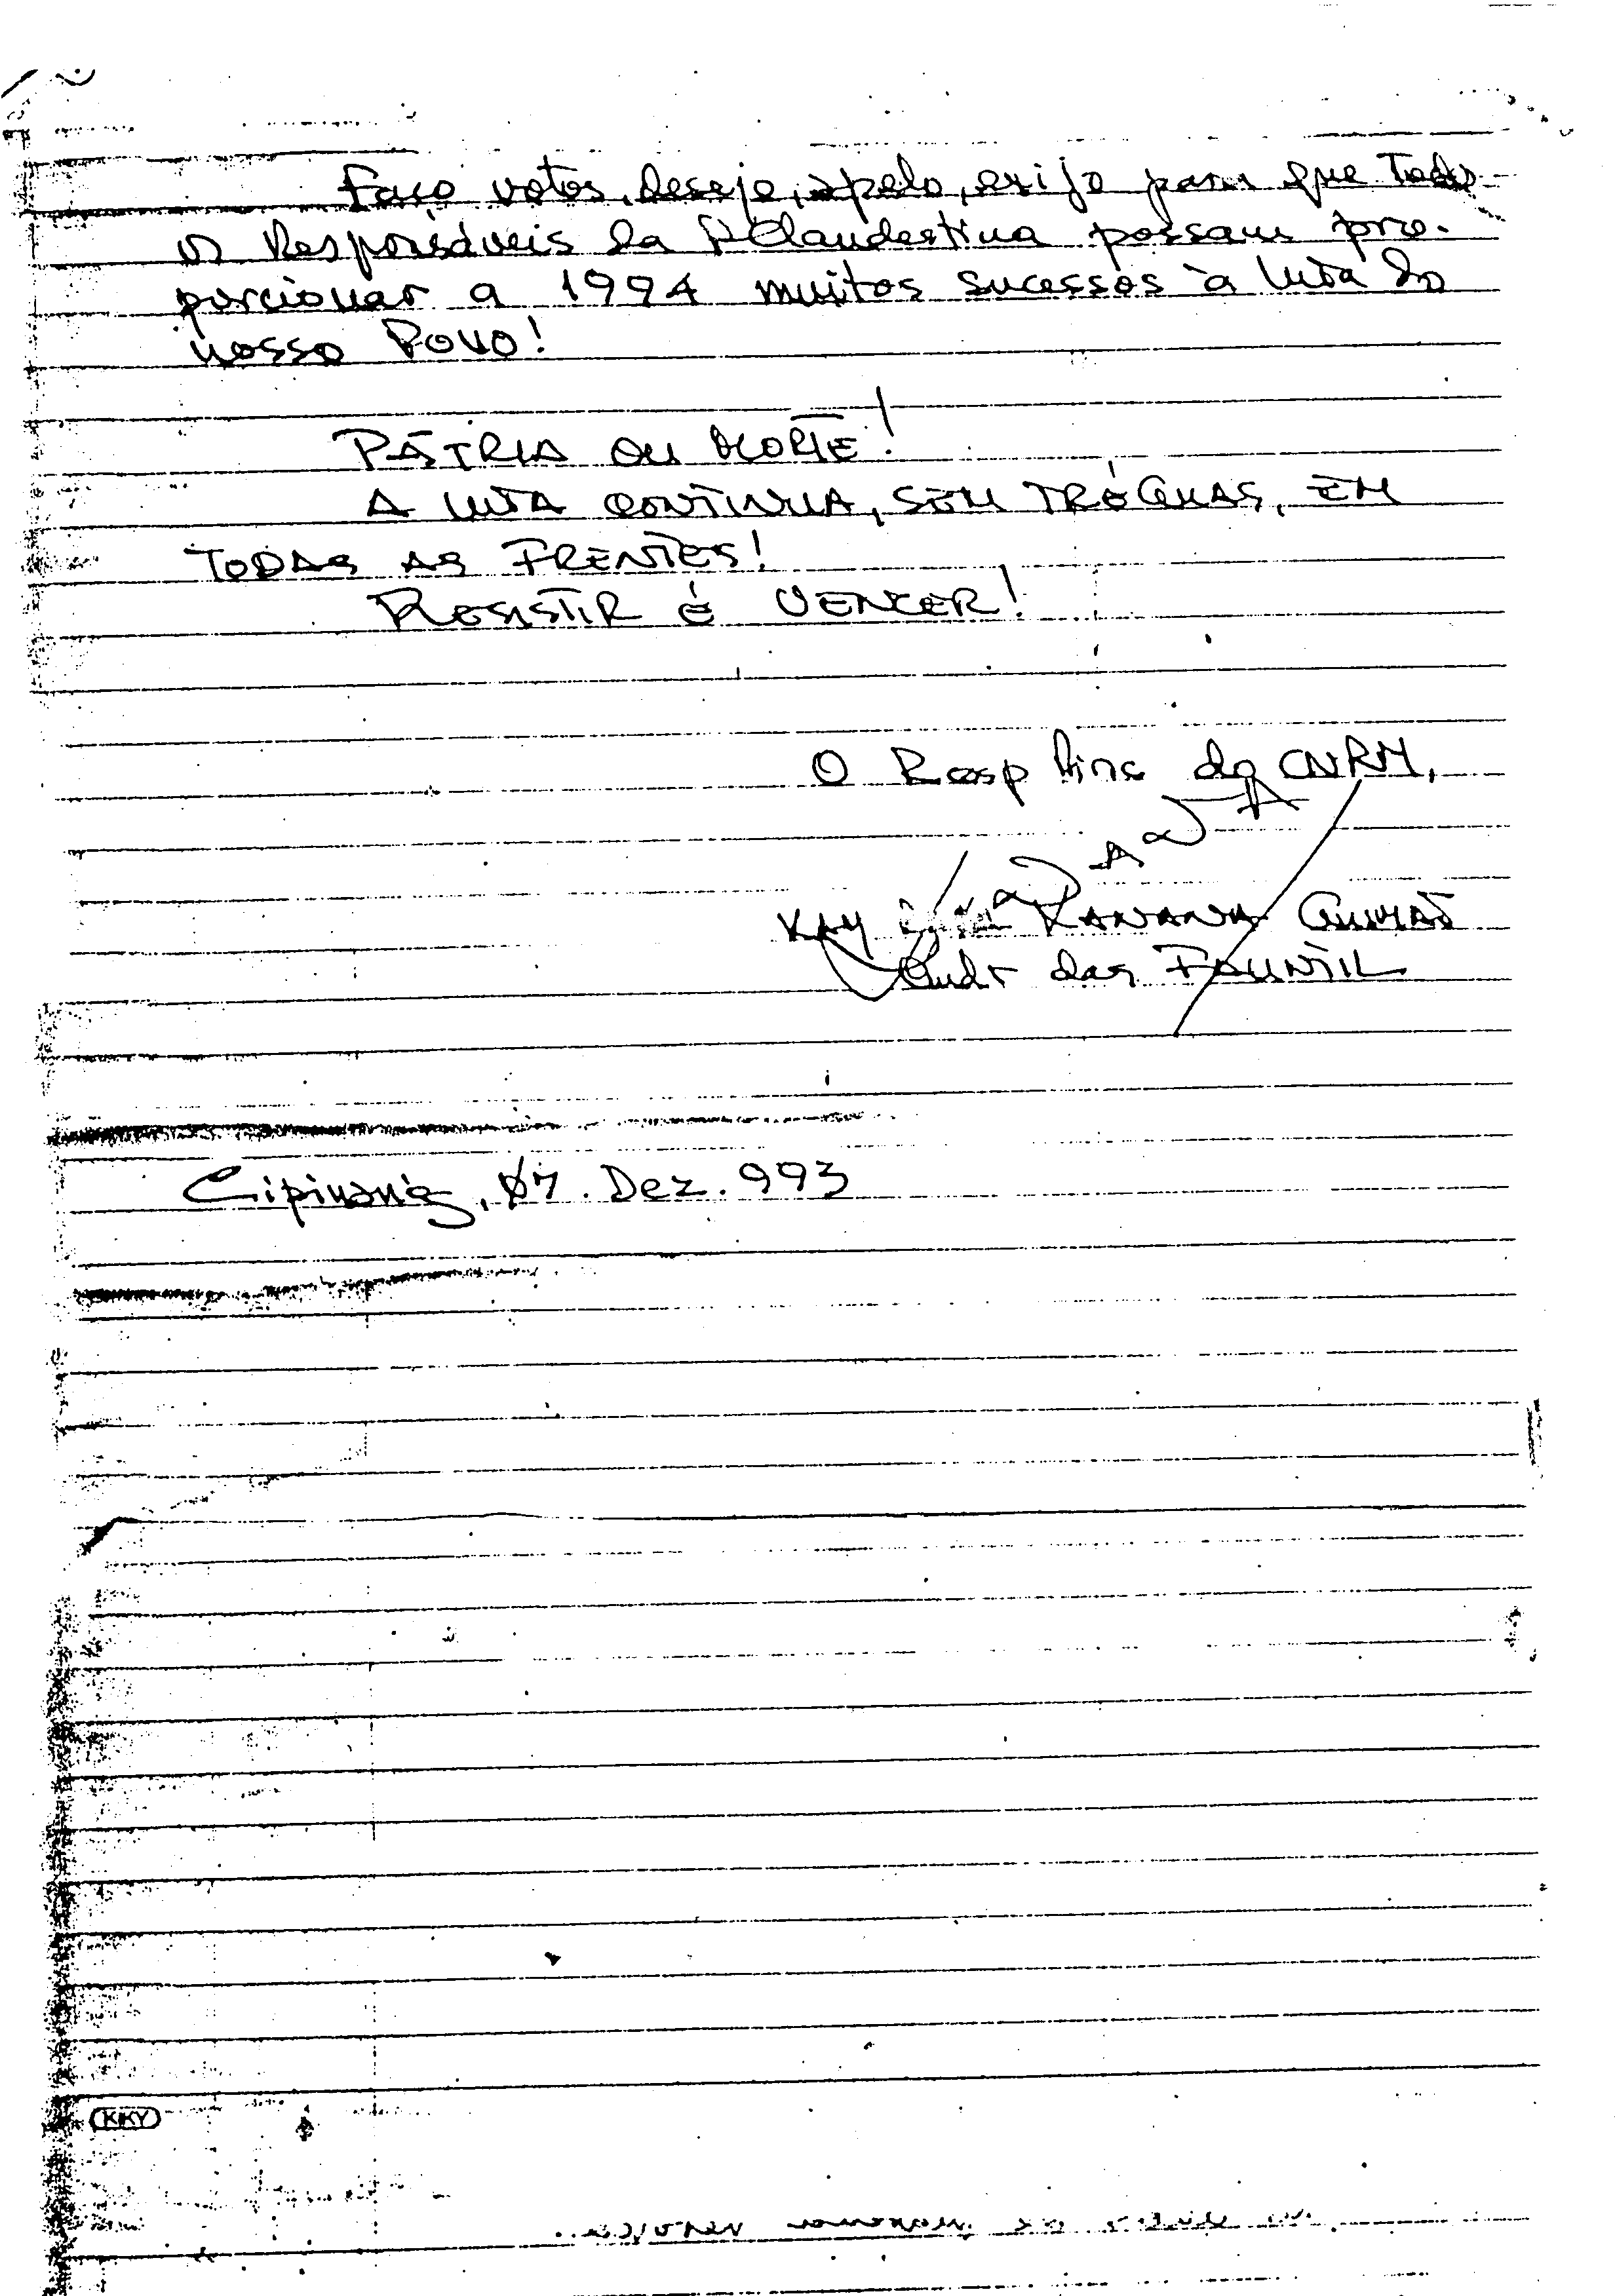 Faço votos, desejo, apelo, exijo para que Todos
os Responsáveis da F. Clandestina possam pro-
porcionar a 1994 muitos sucessos à luta do
nosso Povo!
PÁTRIA OU MORTE!
A LUTA CONTINUA, SEM TRÉGUAS, EM
TODAS AS FRENTES!
RESISTIR É VENCER!
O Resp Princ do CNRM,
KAY RALA XANANA GUSMÃO
Cmdt das FALINTIL
Cipinang, 07. Dez. 993
KIKY